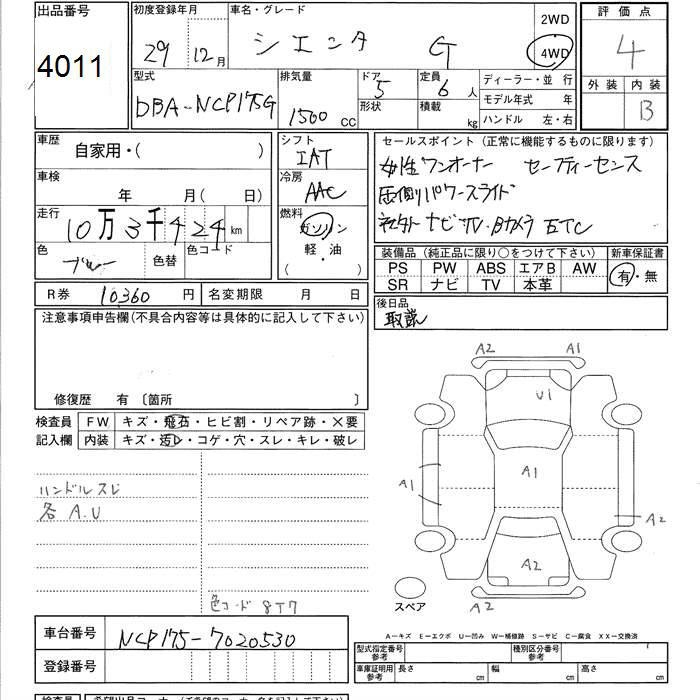 出品番号 初度登録年月 車名・グレード 2WD 評価点
4011 29年 12月 シエンタ G 4WD 4
型式 排気量 ドア 定員 ディーラー・並行 外装 内装
DBA-NCP175G 1500cc 5 6人 モデル年式 年 B
形状 積載 kg ハンドル 左・右
車歴 シフト セールスポイント(正常に機能するものに限ります)
自家用・( ) IAT 女性ワンオーナー セーフティーセンス
車検 冷房 両側パワースライド
年 月( 日) AAC 社外ナビTV・Bカメラ ETC
走行 燃料
10万3千424km ガソリン
色 色替 色コード 軽・油
ブルー ( )
装備品(純正品に限り○をつけて下さい) 新車保証書
PS PW ABS エアB AW 有・無
SR ナビ TV 本革
R券 10,360円 名変期限 月 日
後日品
取説
注意事項申告欄(不具合内容等は具体的に記入して下さい)
修復歴 有〔箇所 〕
検査員 FW キズ・飛石・ヒビ割・リペア跡・×要
記入欄 内装 キズ・汚レ・コゲ・穴・スレ・キレ・破レ
ハンドルスレ
各A.U
色コード 8T7
A2 A1
U1
A1
A1
A2
A2
A2
スペア
A−キズ E−エクボ U−凹み W−補修跡 S−サビ C−腐食 XX−交換済
車台番号 NCP175-7020530
登録番号
型式指定番号 参考 種別区分番号 参考
車庫証明用 参考 長さ cm 幅 cm 高さ cm